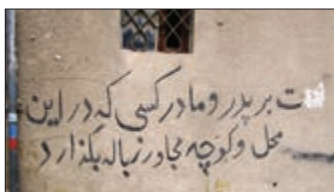 بر پدر و مادر کسی که در این
محل و کوچه مجاور زباله بگذارد